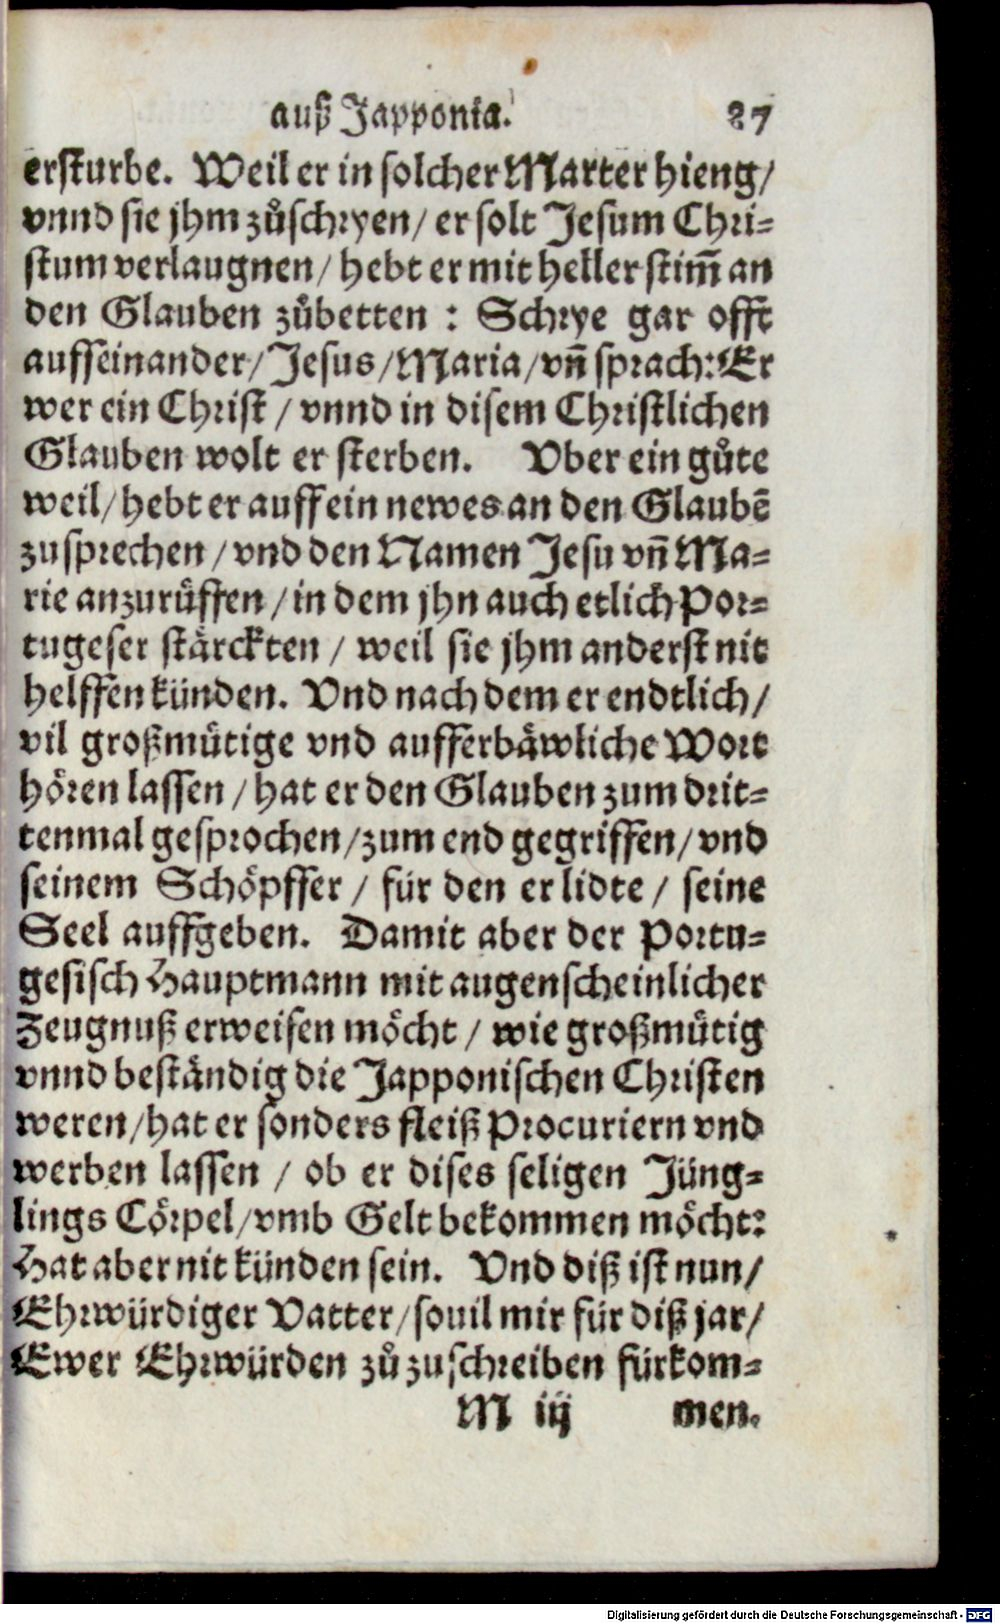 auß Japponia. 87
ersturbe. Weil er in solcher Marter hieng/
vnnd sie jhm zůschryen/ er solt Jesum Chri-
stum verlaugnen/ hebt er mit heller stim̃ an
den Glauben zůbetten : Schrye gar offt
auffeinander/ Jesus/ Maria/ vn̄ sprach: Er
wer ein Christ / vnnd in disem Christlichen
Glauben wolt er sterben. Vber ein gůte
weil/ hebt er auff ein newes an den Glaubē
zu sprechen / vnd den Namen Jesu vn̄ Ma-
rie anzurůffen / in dem jhn auch etlich Por-
tugeser stärckten / weil sie jhm anderst nit
helffen künden. Vnd nach dem er endtlich/
vil großmütige vnd aufferbäwliche Wort
hören lassen / hat er den Glauben zum drit-
tenmal gesprochen/ zum end gegriffen/ vnd
seinem Schöpffer / für den er lidte / seine
Seel auffgeben. Damit aber der Portu-
gesisch Hauptmann mit augenscheinlicher
Zeugnuß erweisen möcht / wie großmütig
vnnd beständig die Japponischen Christen
weren/ hat er sonders fleiß Procuriern vnd
werben lassen / ob er dises seligen Jüng-
lings Cörpel/ vmb Gelt bekommen möcht:
Hat aber nit künden sein. Vnd diß ist nun/
Ehrwürdiger Vatter/ souil mir für diß jar/
Ewer Ehrwürden zů zuschreiben fürkom-
M iij men.
Digitalisierung gefördert durch die Deutsche Forschungsgemeinschaft - DFG